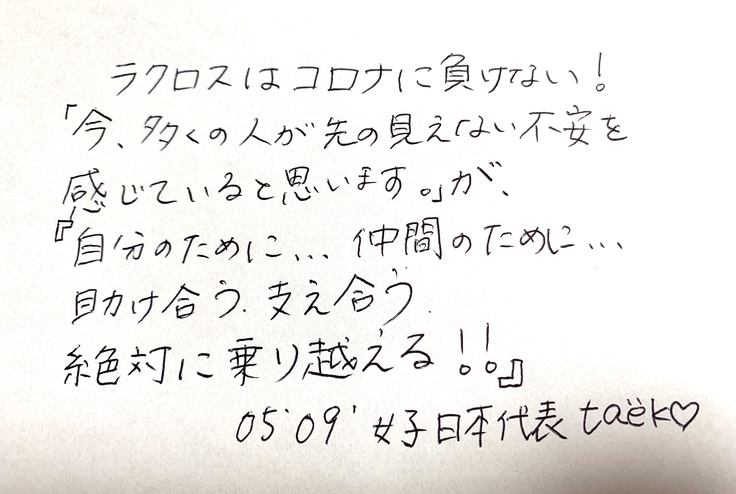 ラクロスはコロナに負けない!
「今、多くの人が先の見えない不安を
感じていると思います。」が、
『自分のために... 仲間のために...
助け合う.支え合う.
絶対に乗り越える!!』
05'09' 女子日本代表 taëk♡